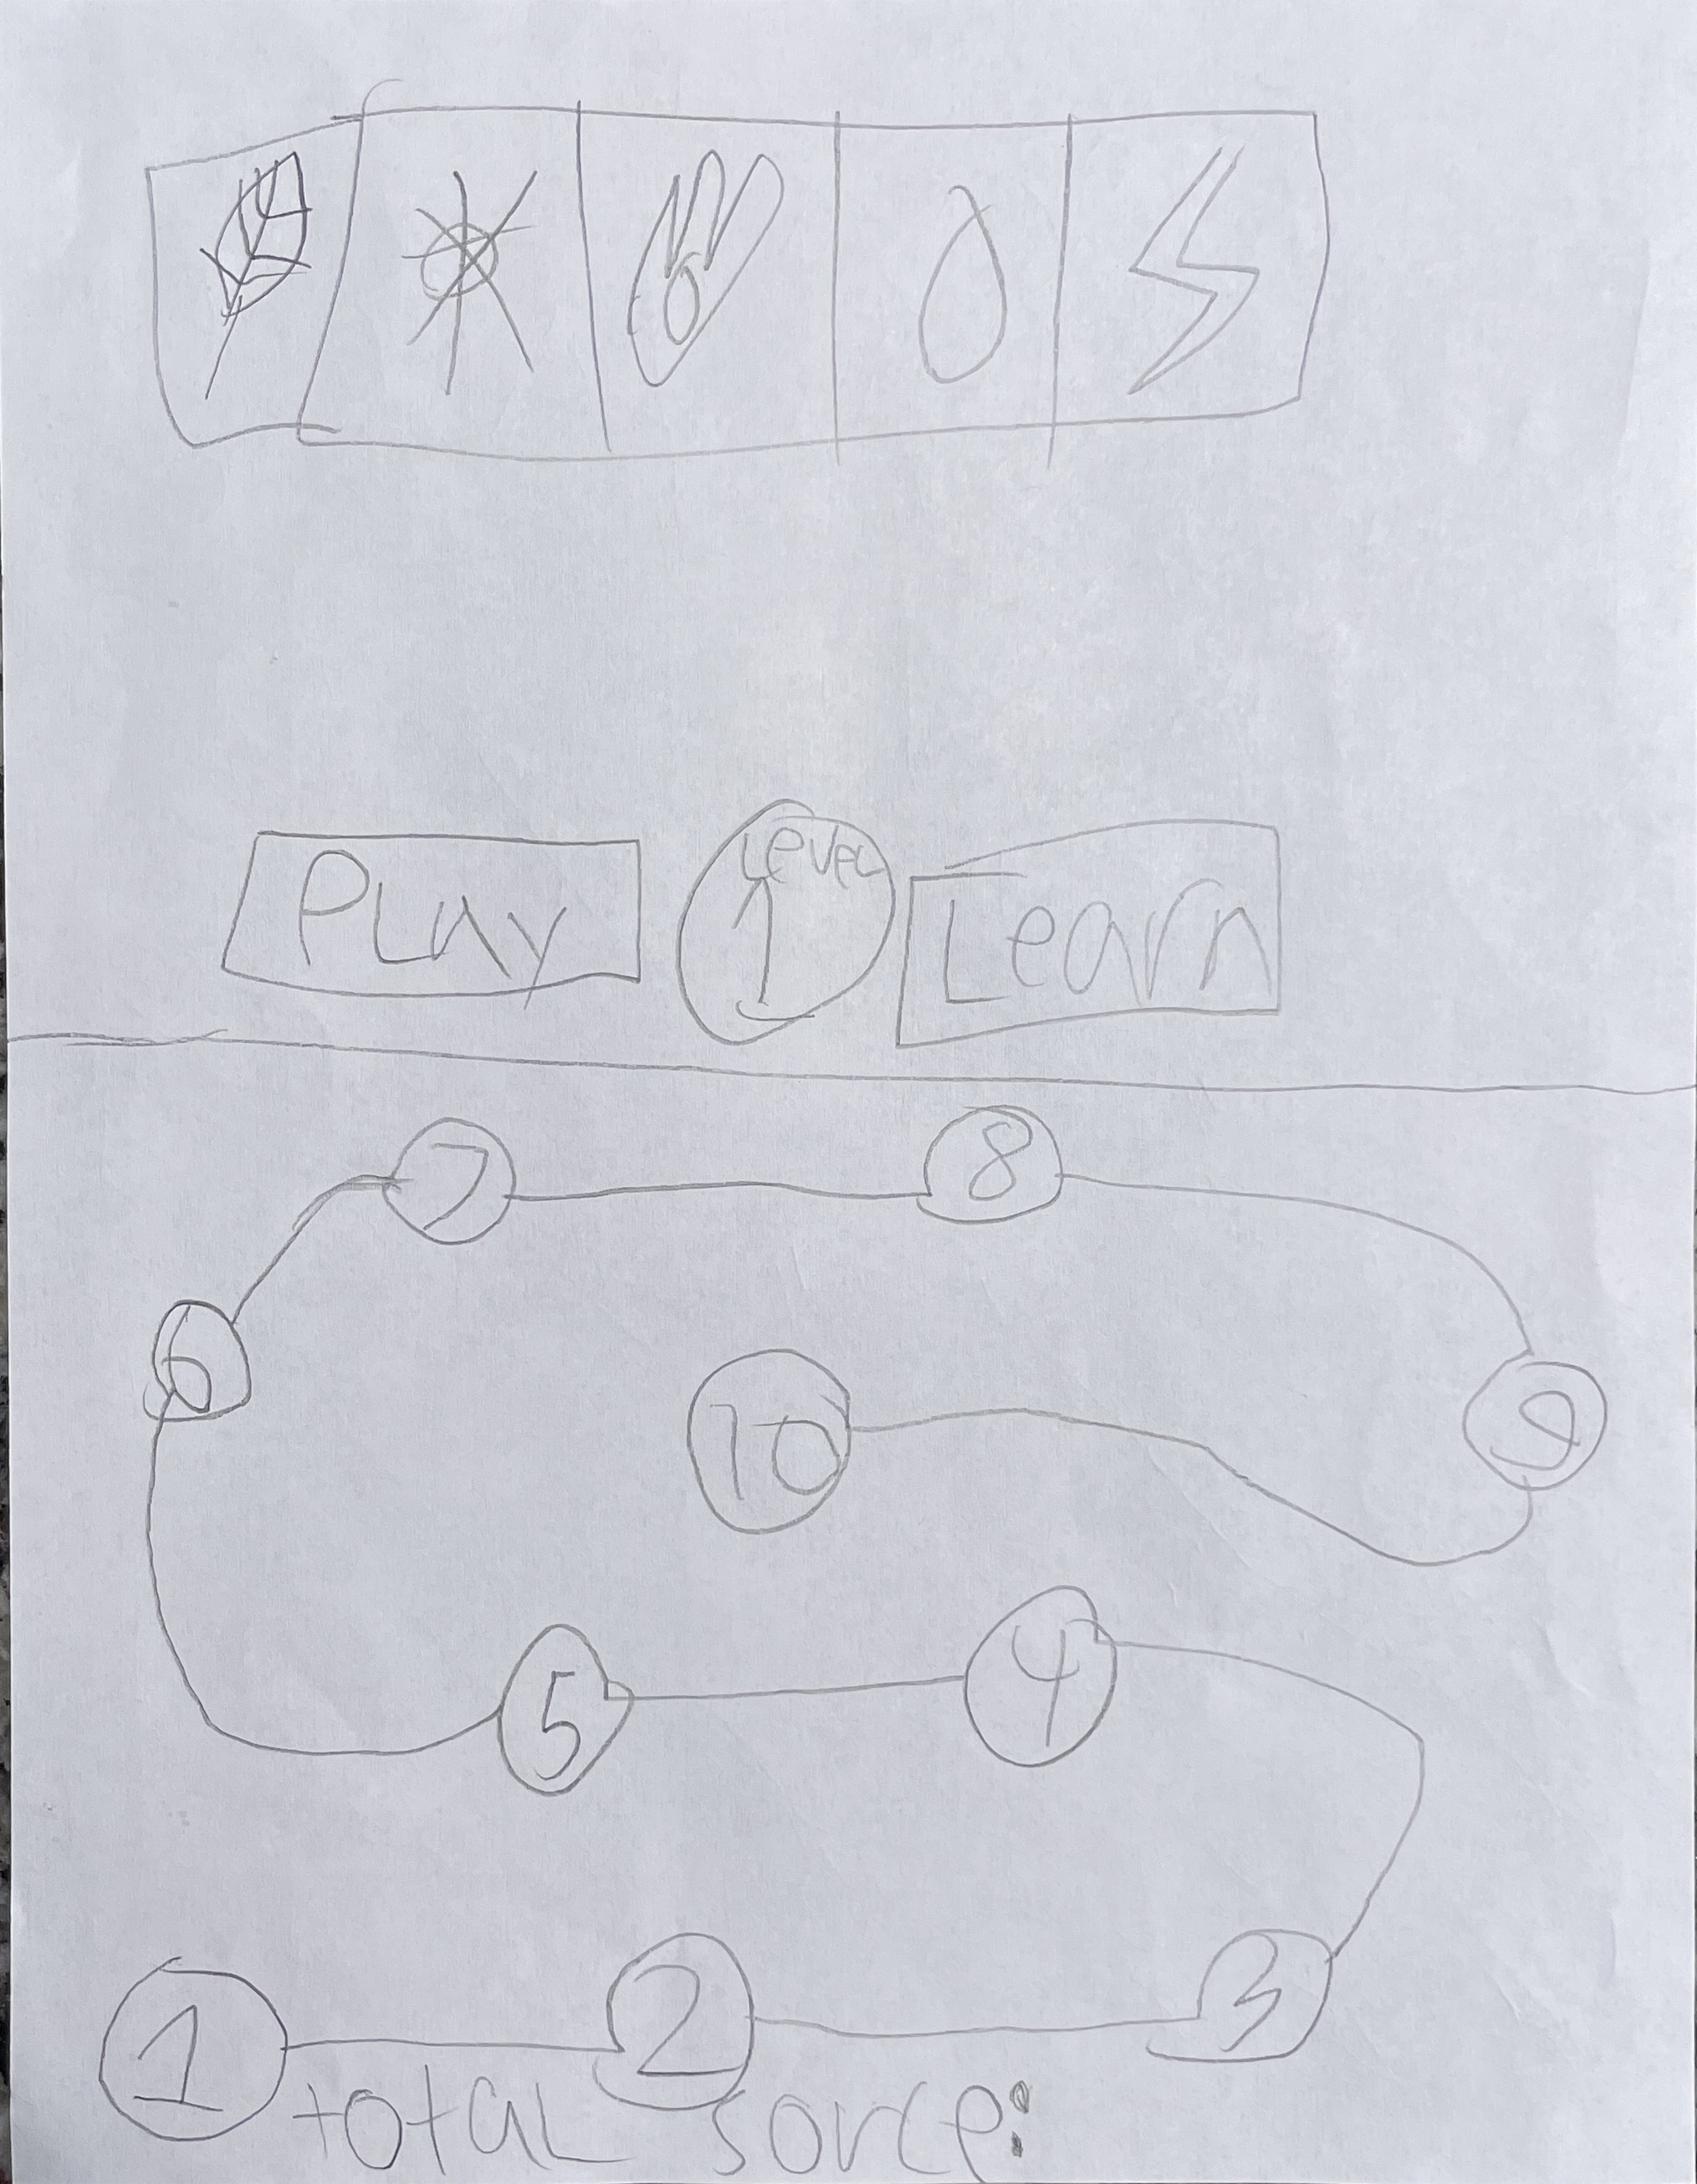 Play
Level
1
Learn
7
8
6
10
9
5
4
1
2
3
total sorce: